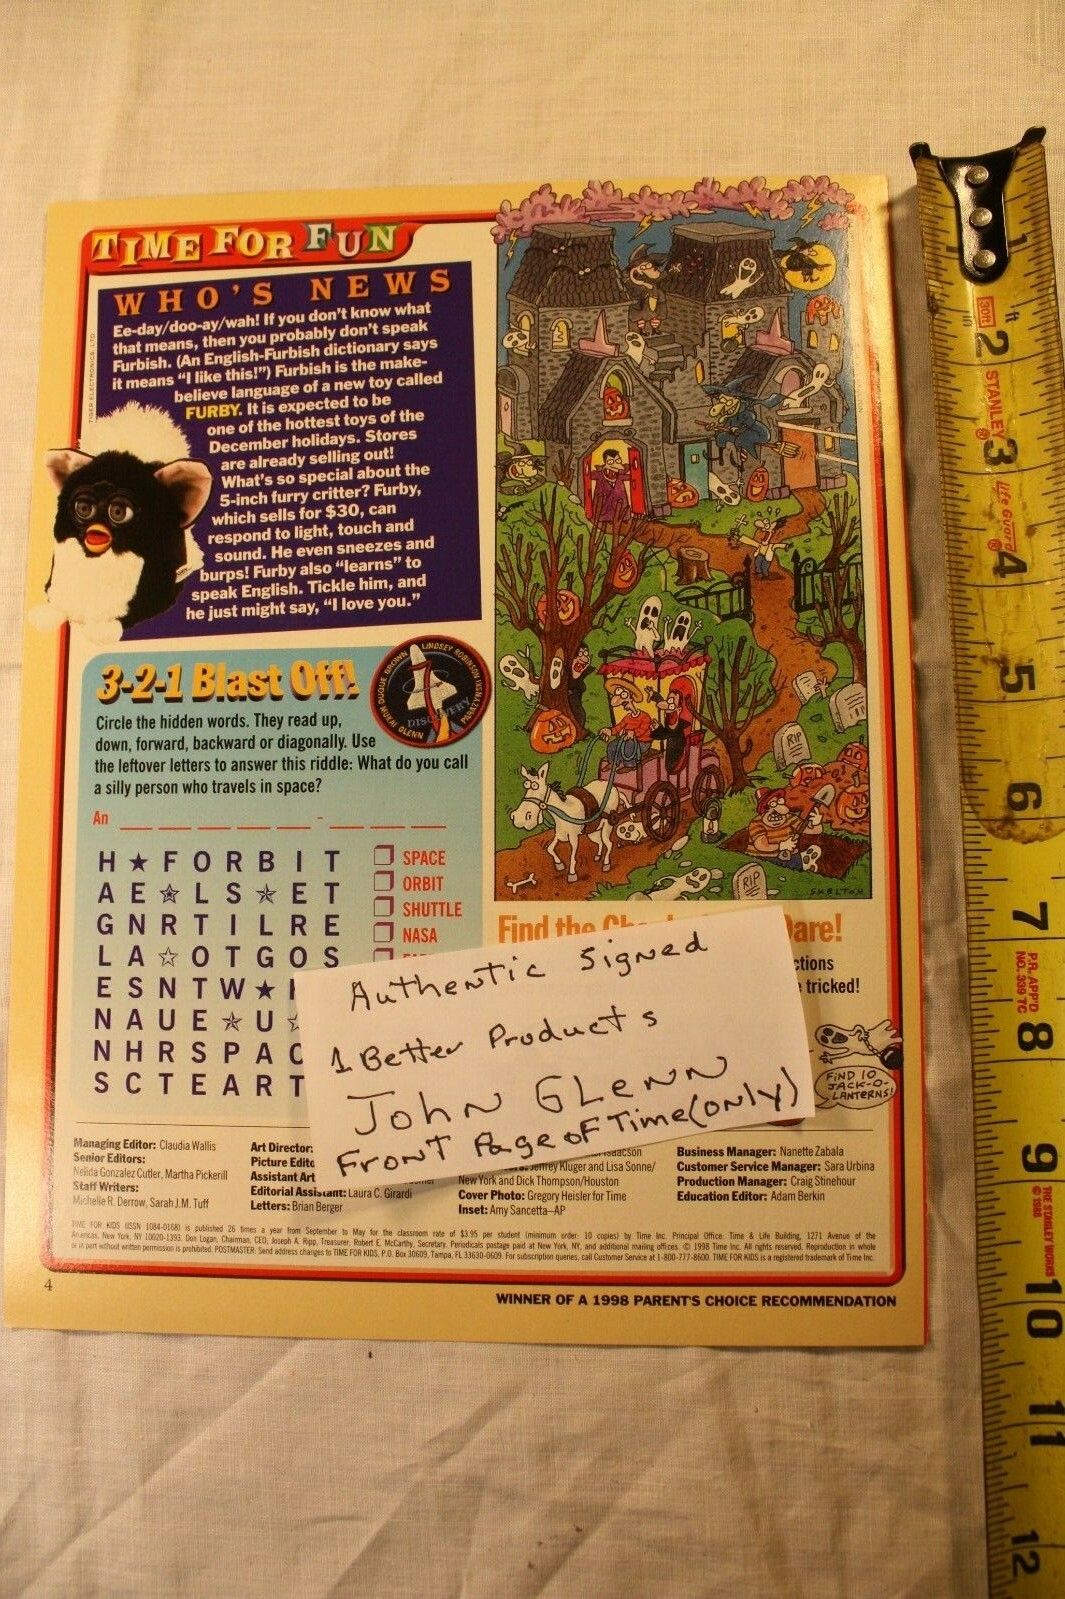 TIME FOR FUN
WHO'S NEWS
Ee-day/doo-ay/wah! If you don't know what
that means, then you probably don't speak
Furbish. (An English-Furbish dictionary says
it means "I like this!") Furbish is the make-
believe language of a new toy called
FURBY. It is expected to be
one of the hottest toys of the
December holidays. Stores
are already selling out!
What's so special about the
5-inch furry critter? Furby,
which sells for $30, can
respond to light, touch and
sound. He even sneezes and
burps! Furby also "learns" to
speak English. Tickle him, and
he just might say, "I love you."
TIGER ELECTRONICS, LTD.
3-2-1 Blast Off!
Circle the hidden words. They read up,
down, forward, backward or diagonally. Use
the leftover letters to answer this riddle: What do you call
a silly person who travels in space?
DUQUE BROWN LINDSEY ROBINSON PARAZYNSKI
DISCOVERY
MUKAI GLENN
An
H ★ F O R B I T
A E ☆ L S ☆ E T
G N R T I L R E
L A ☆ O T G O S
E S N T W ★
N A U E ☆ U ☆
N H R S P A C
S C T E A R T
SPACE
ORBIT
SHUTTLE
NASA
RIP
RIP
SKELTON
Find the Dare!
ctions
tricked!
FIND 10
JACK-O-
LANTERNS!
Authentic Signed
1 Better Products
John Glenn
Front Page of Time (only)
Managing Editor: Claudia Wallis
Senior Editors:
Nelida Gonzalez Cutler, Martha Pickerill
Staff Writers:
Michelle R. Derrow, Sarah J.M. Tuff
Art Director:
Picture Edito
Assistant Art
Editorial Assistant: Laura C. Girardi
Letters: Brian Berger
Isaacson
Jeffrey Kluger and Lisa Sonne/
New York and Dick Thompson/Houston
Cover Photo: Gregory Heisler for Time
Inset: Amy Sancetta–AP
Business Manager: Nanette Zabala
Customer Service Manager: Sara Urbina
Production Manager: Craig Stinehour
Education Editor: Adam Berkin
TIME FOR KIDS (ISSN 1084-0168) is published 26 times a year from September to May for the classroom rate of $3.95 per student (minimum order: 10 copies) by Time Inc. Principal Office: Time & Life Building, 1271 Avenue of the
Americas, New York, NY 10020-1393. Don Logan, Chairman, CEO; Joseph A. Ripp, Treasurer; Robert E. McCarthy, Secretary. Periodicals postage paid at New York, NY, and additional mailing offices. © 1998 Time Inc. All rights reserved. Reproduction in whole
or in part without written permission is prohibited. POSTMASTER: Send address changes to TIME FOR KIDS, P.O. Box 30609, Tampa, FL 33630-0609. For subscription queries, call Customer Service at 1-800-777-8600. TIME FOR KIDS is a registered trademark of Time Inc.
4
WINNER OF A 1998 PARENT'S CHOICE RECOMMENDATION
1
30ft
2
STANLEY®
3
Life Guard®
4
5
6
7
P.R. APP'D
NO. 339 TC
8
9
THE STANLEY WORKS
© 1988
10
11
12